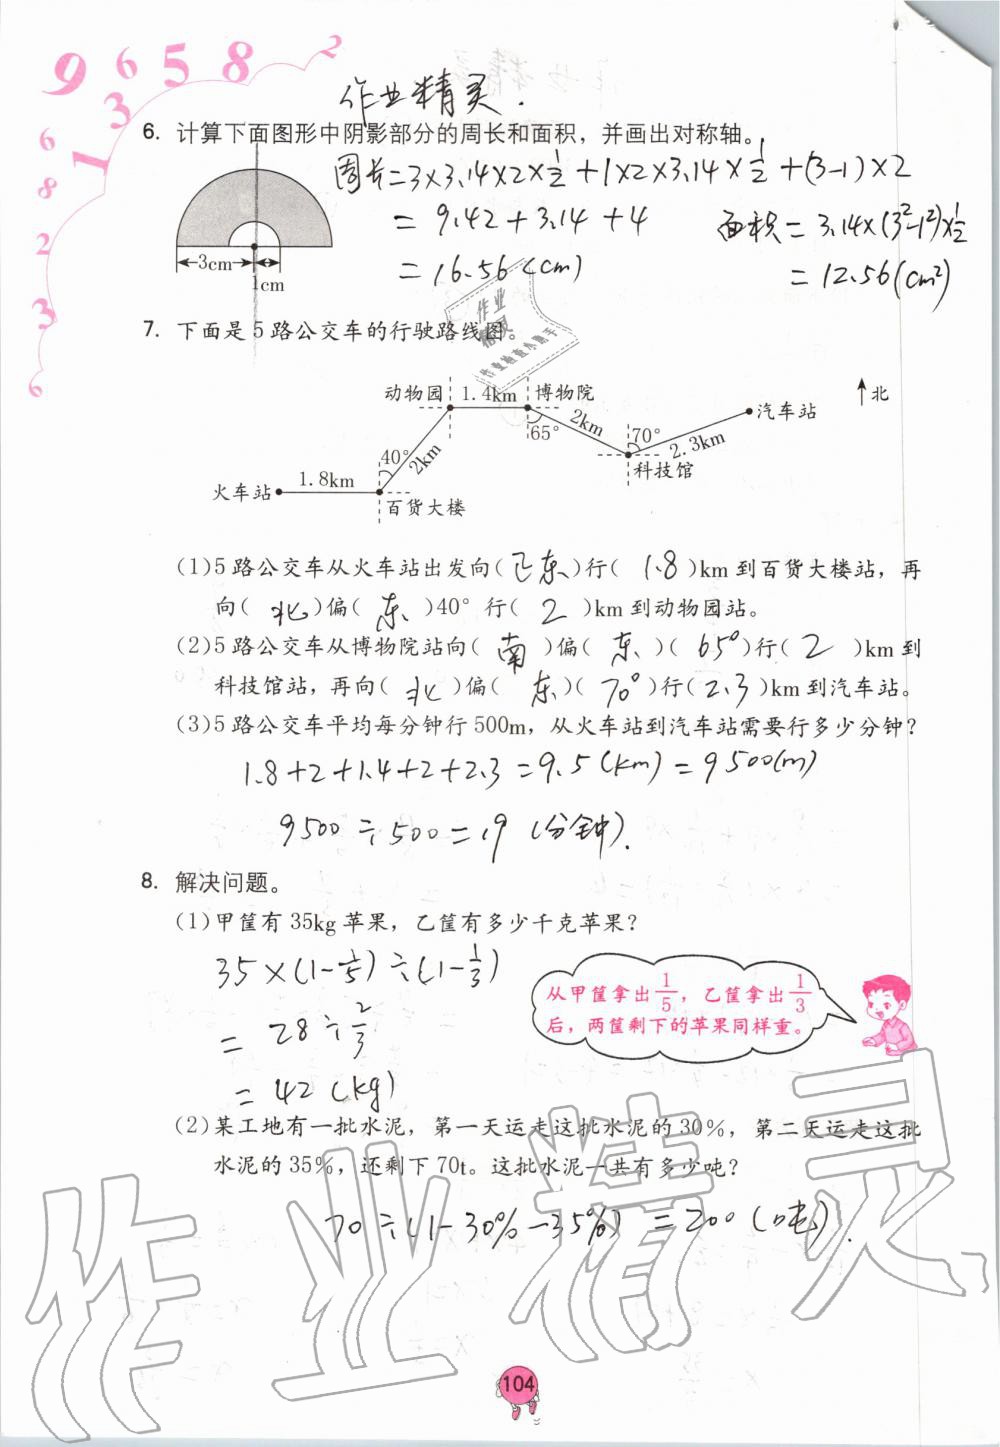 9 6 5 8 2
1 3
6
8
2
3
6
作业精灵.
6. 计算下面图形中阴影部分的周长和面积，并画出对称轴。
周长=3×3.14×2×1/2+1×2×3.14×1/2+(3-1)×2
=9.42+3.14+4
=16.56(cm)
面积=3.14×(3²-1²)×1/2
=12.56(cm²)
3cm
1cm
7. 下面是5路公交车的行驶路线图。
作业精灵
作业检查小助手
动物园 1.4km 博物院
北
汽车站
65° 2km 70° 2.3km
科技馆
40° 2km
火车站 1.8km
百货大楼
(1)5路公交车从火车站出发向(正东)行(1.8)km到百货大楼站，再
向(北)偏(东)40°行(2)km到动物园站。
(2)5路公交车从博物院站向(南)偏(东)(65°)行(2)km到
科技馆站，再向(北)偏(东)(70°)行(2.3)km到汽车站。
(3)5路公交车平均每分钟行500m，从火车站到汽车站需要行多少分钟？
1.8+2+1.4+2+2.3=9.5(km)=9500(m)
9500÷500=19(分钟).
8. 解决问题。
(1)甲筐有35kg苹果，乙筐有多少千克苹果？
35×(1-1/5)÷(1-1/3)
=28÷2/3
=42(kg)
从甲筐拿出1/5，乙筐拿出1/3
后，两筐剩下的苹果同样重。
(2)某工地有一批水泥，第一天运走这批水泥的30%，第二天运走这批
水泥的35%，还剩下70t。这批水泥一共有多少吨？
70÷(1-30%-35%)=200(吨).
作业精灵
104